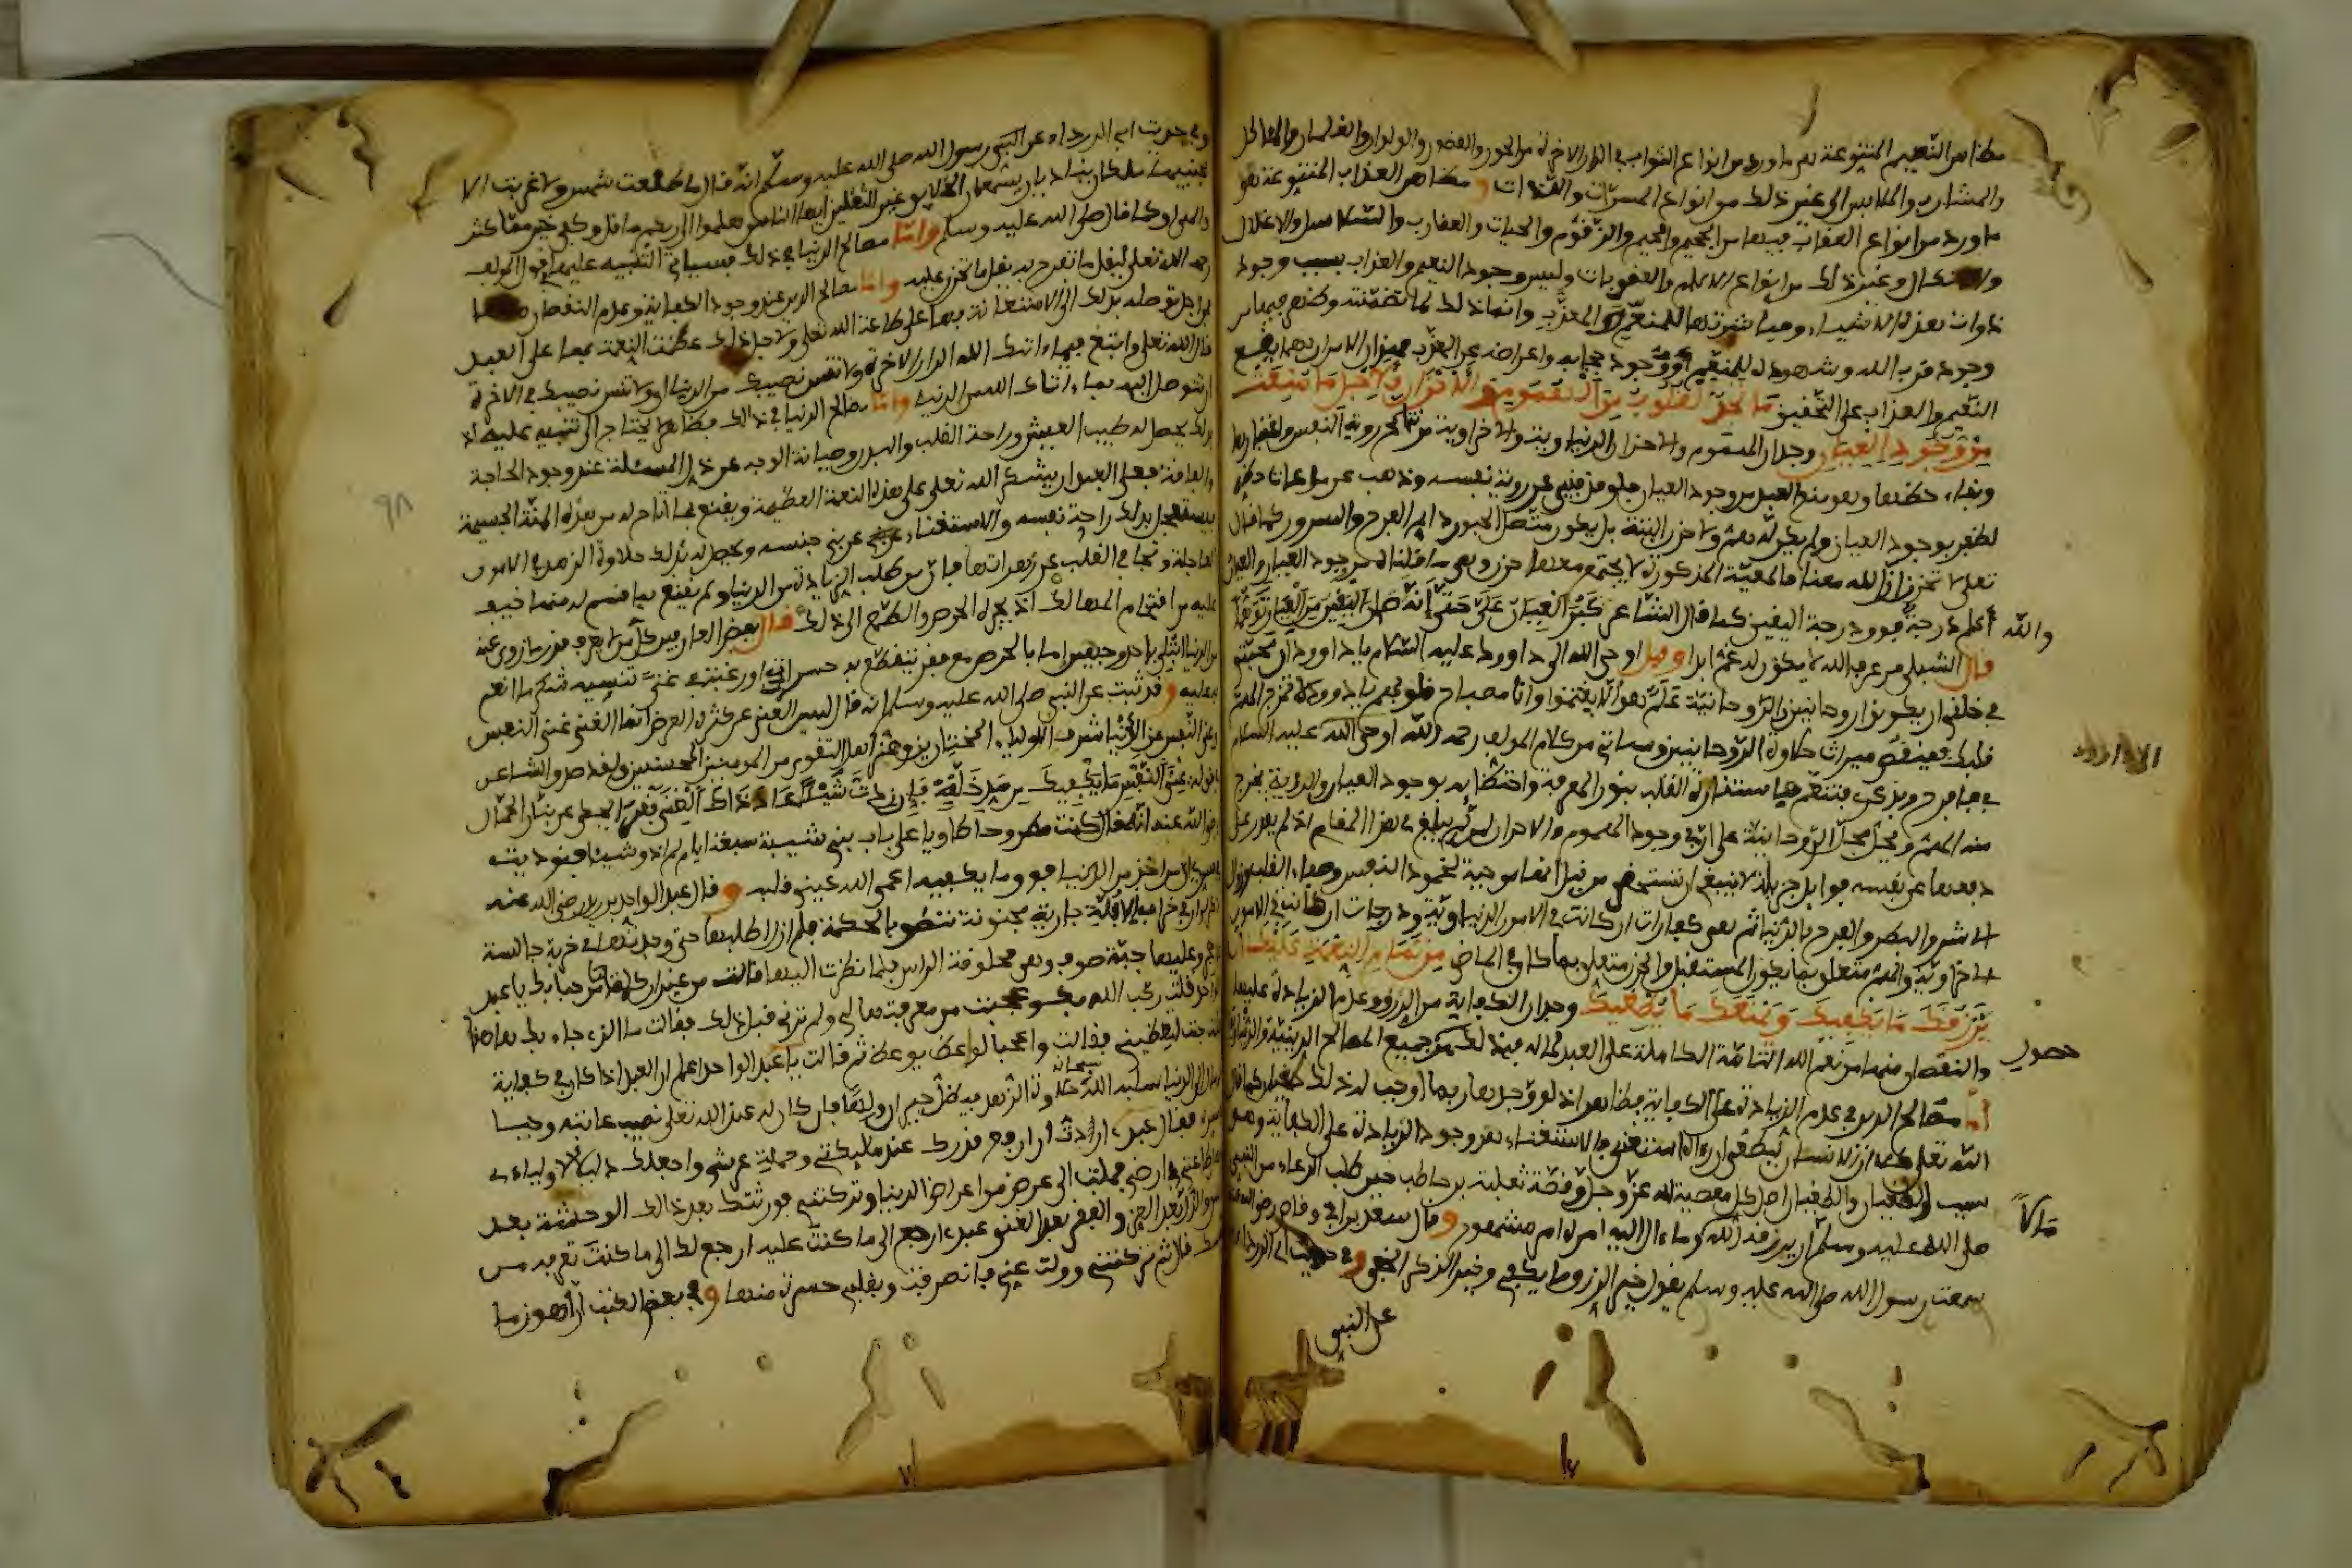 مظاهر النعيم المتنوعة هو ما ورد من انواع الثواب في الدار الاخرة من الحور والقصور والولدان والغلمان والمآكل
والمشارب والملابس الى غير ذلك من انواع المسرات واللذات ومظاهر العذاب المتنوعة هو
ما ورد من انواع العقاب فيها من الجحيم والحميم والزقوم والحيات والعقارب والسلاسل والاغلال
والانكال وغير ذلك من انواع الالام والعقوبات وليس وجود النعيم والعذاب بسبب وجود
ذوات هذه الاشياء ومباشرتها للمنعم والمعذب وانما ذلك لما تضمنته وظهر فيها من
وجود قرب الله وشهوده للمنعم ووجود حجابه واعراضه عن المعذب فهذان الامران بهما يقع
النعيم والعذاب على التحقيق ما تجد القلوب من الهموم والاحزان فلاجل ما منعت
من وجود العيان وجدان الهموم والاحزان الدنياوية والاخراوية من نتائج رؤية النفس
وبقاء حظها وهو منع العبد من وجود العيان فلو فني عن رؤية نفسه وذهب عن مراعاة حظه
لظفر بوجود العيان ولم يكن له هم ولا حزن البتة بل يكون متصل الحبور دايم الفرح والسرور كما قال
تعلى لا تحزن ان الله معنا فالمعية المذكورة لا يجتمع معها حزن وهي ما قلناه من وجود العيان
أعلى درجة فوق درجة اليقين كما قال الشاعر كبر العيان علي حتى انه صار اليقين من العيان توهما
قال الشبلي من عرف الله لا يكون له غم ابدا وقيل اوحى الله الى داوود عليه السلام يا داوود ان محبتي
في خلقي ان يكونوا روحانيين والروحانية علم هو ألا يغتموا وانا مصباح قلوبهم يا داوود لا تمزج الهم
قلبك فينقص ميراث حلاوة الروحانيين وسياتي من كلام المولف رحمه الله اوحى الله عليه السلام
منه الهم ويحل محل الروحانية على ان في وجود الهموم والاحزان لمن لم يبلغ هذا المقام اذا لم يقدر على
دفعها عن نفسه فوايد جزيلة لا ينبغي ان تستحقر من قبل انها موجبة لخمود النفس وصفاء القلب
الاشر والبطر والفرح بالدنيا ثم هي كفارات ان كانت في الامور الدنياوية ودرجات ان كانت في الامور
الاخراوية والهم متعلق بما يكون في المستقبل والحزن متعلق بما كان في الماضي من تمام النعمة عليك ان
يرزقك ما يكفيك ويمنعك ما يطغيك وجدان الكفاية من الرزق وعدم الزيادة عليها
والنقصان منها من نعم الله التامة الكاملة على العبد لما له في ذلك من جميع المصالح الدينية
أما مصالح الدين في عدم الزيادة على الكفاية فظاهر اذ لو وجدها ربما اوجب له ذلك طغيانا كما قال
الله تعلى كلا ان الانسان ليطغى ان رءاه استغنى فالاستغناء هو وجود الزيادة على الكفاية وهو
سبب الطغيان والطغيان اصل كل معصية لله عز وجل وقصة ثعلبة بن حاطب حين طلب الدعاء من النبي
صلى الله عليه وسلم ان يرزقه الله وما ءال اليه امره امر مشهور وقال سعد بن ابي وقاص رضي الله عنه
سمعت رسول الله صلى الله عليه وسلم يقول خير الرزق ما يكفي وخير الذكر الخفي وفي حديث ابي الدرداء
عن النبي
والله
حصول
مالا
وفي حديث ابي الدرداء عن النبي رسول الله صلى الله عليه وسلم انه قال ما طلعت شمس ولا غربت الا
بجنبيها ملكان يناديان يسمعان الخلايق غير الثقلين ايها الناس هلموا الى ربكم ما قل وكفى خير مما كثر
والهى او كما قال صلى الله عليه وسلم واما مصالح الدنيا في ذلك فسياتي التنبيه عليها في قول المولف
رحمه الله تعلى ليقل ما تفرح به يقل ما تحزن عليه واما مصالح الدين عند وجود الكفاية وعدم النقصان منها
من اجل توصله بذلك الى الاستعانة بها على طاعة الله تعلى ولاجل ذلك عظمت النعمة بها على العبد
قال الله تعلى وابتغ فيما ءاتيك الله الدار الاخرة ولا تنس نصيبك من الدنيا اي ولا تنس نصيبك في الاخرة
ان توصل اليه بما ءاتاك الله من الدنيا واما مصالح الدنيا في ذلك فظاهر لا يحتاج الى تنبيه عليه اذ
بذلك يحصل له طيب العيش وراحة القلب والبدن وصيانة الوجه عن ذل المسئلة عند وجود الحاجة
والفاقة فعلى العبد ان يشكر الله تعلى على هذه النعمة العظيمة ويقنع بما اتاح له من هذه المنة الجسيمة
فيستعجل بذلك راحة نفسه والاستغناء عن بني جنسه ويحصل له بذلك حلاوة الزهد في الامور
العاجلة وتجافي القلب عن زهرات
عليه من اقتحام المهالك اذ يجره الحرص والطمع الى ذلك قال بعض العارفين كل من لم يعرف قدر ما زوي عنه
من الدنيا ابتلي باحد وجهين اما بالحرص مع فقر يتقطع به حسرات او رغبة في غنى تنسيه شكر ما انعم
به عليه وقد ثبت عن النبي صلى الله عليه وسلم انه قال ليس الغنى عن كثرة العرض انما الغنى غنى النفس
غنى النفس ما يكفيك من سد خلة فان زدت شيئا عاد ذاك الغنى فقرا
رضي الله عنه انه قال كنت مطروحا طاويا على باب بني شيبة سبعة ايام لم اذق شيئا فنوديت
في سري ان من اخذ من الدنيا فوق ما يكفيه اعمى الله عيني قلبه وقال عبد الواحد بن زيد رضي الله عنه
ذكر لي ان في خراب الابلة جارية مجنونة تنطق بالحكمة فلم ازل اطلبها حتى وجدتها في خربة جالسة
على حجر وعليها جبة صوف وهي محلوقة الراس فلما نظرت اليها قالت من غير ان كلمتها مرحبا بك يا عبد
الواحد فقلت رحب الله بك وعجبت من معرفتها لي ولم ترني قبل ذلك فقالت ما الذي جاء بك هاهنا
فقلت جئت لتعظيني فقالت واعجبا لواعظ يوعظ ثم قالت يا عبد الواحد اعلم ان العبد اذا كان في كفاية
ثم مال الى الدنيا سلبه الله سبحانه حلاوة الزهد فيظل حيران والها فان كان له عند الله تعلى نصيب عاتبه وحيا
في سره فقال عبدي اردت ان ارفع قدرك عند ملايكتي وحملة عرشي واجعلك دليلا لاوليائي
واهل طاعتي في ارضي فملت الى عرض من اعراض الدنيا وتركتني فورثتك بعد ذلك الوحشة بعد
الانس والذل بعد العز والفقر بعد الغنى عبدي ارجع الى ما كنت عليه ارجع لك الى ما كنت تعرفه من
نفسك قال ثم تركتني وولت عني فانصرفت وبقلبي حسرة منها وفي بعض الكتب ان اهون ما
٩٨